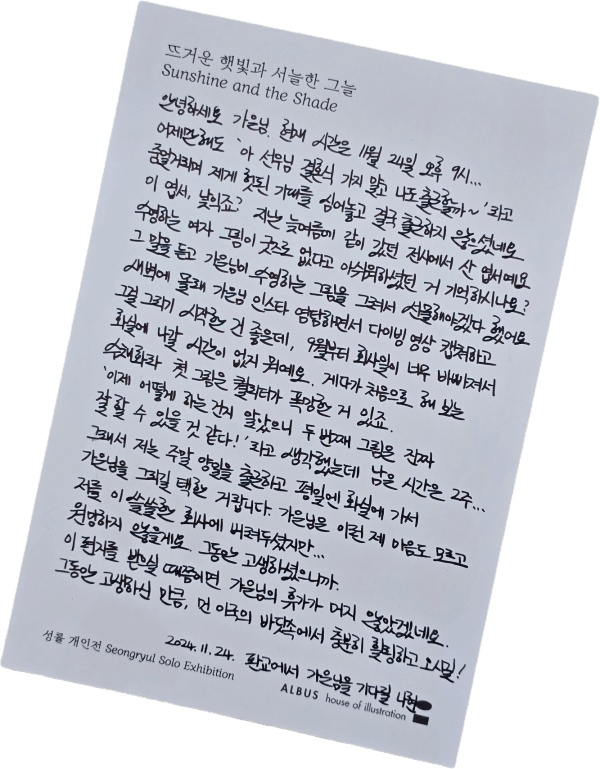 뜨거운 햇빛과 서늘한 그늘
Sunshine and the Shade
안녕하세요 가은님. 현재 시간은 11월 24일 오후 9시...
어제만해도 '아 선우님 결혼식 가지 말고 나도 출근할까~'라고
중얼거리며 제게 헛된 기대를 심어놓고 결국 출근하지 않으셨네요
이 엽서, 낯익죠? 저는 늦여름에 같이 갔던 전시에서 산 엽서예요
수영하는 여자 그림이 굿즈로 없다고 아쉬워하셨던 거 기억하시나요?
그 말을 듣고 가은님이 수영하는 그림을 그려서 선물해야겠다 했어요
새벽에 몰래 가은님 인스타 염탐하면서 다이빙 영상 캡쳐하고
그걸 그리기 시작한 건 좋은데, 9월부터 회사일이 너무 바빠져서
화실에 나갈 시간이 없지 뭐예요. 게다가 처음으로 해 보는
수채화라 첫 그림은 퀄리티가 폭망한 거 있죠.
'이제 어떻게 하는 건지 알았으니 두 번째 그림은 진짜
잘 할 수 있을 것 같다!'라고 생각했는데 남은 시간은 2주...
그래서 저는 주말 양일을 출근하고 평일엔 화실에 가서
가은님을 그리길 택한 거랍니다. 가은님은 이런 제 마음도 모르고
저를 이 쓸쓸한 회사에 버려두셨지만...
원망하지 않을게요. 그동안 고생하셨으니까.
이 편지를 받으실 때쯤이면 가은님의 휴가가 머지 않았겠네요.
그동안 고생하신 만큼, 먼 이국의 바닷속에서 충분히 힐링하고 오시길!
2024. 11. 24. 판교에서 가은님을 기다릴 나현
성률 개인전 Seongryul Solo Exhibition
ALBUS house of illustration